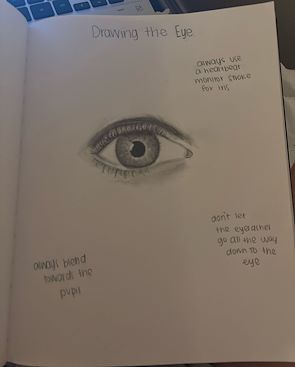 Drawing the Eye
always use
a heartbeat
monitor stroke
for iris
don't let
the eyelashes
go all the way
down to the
eye
always blend
towards the
pupil